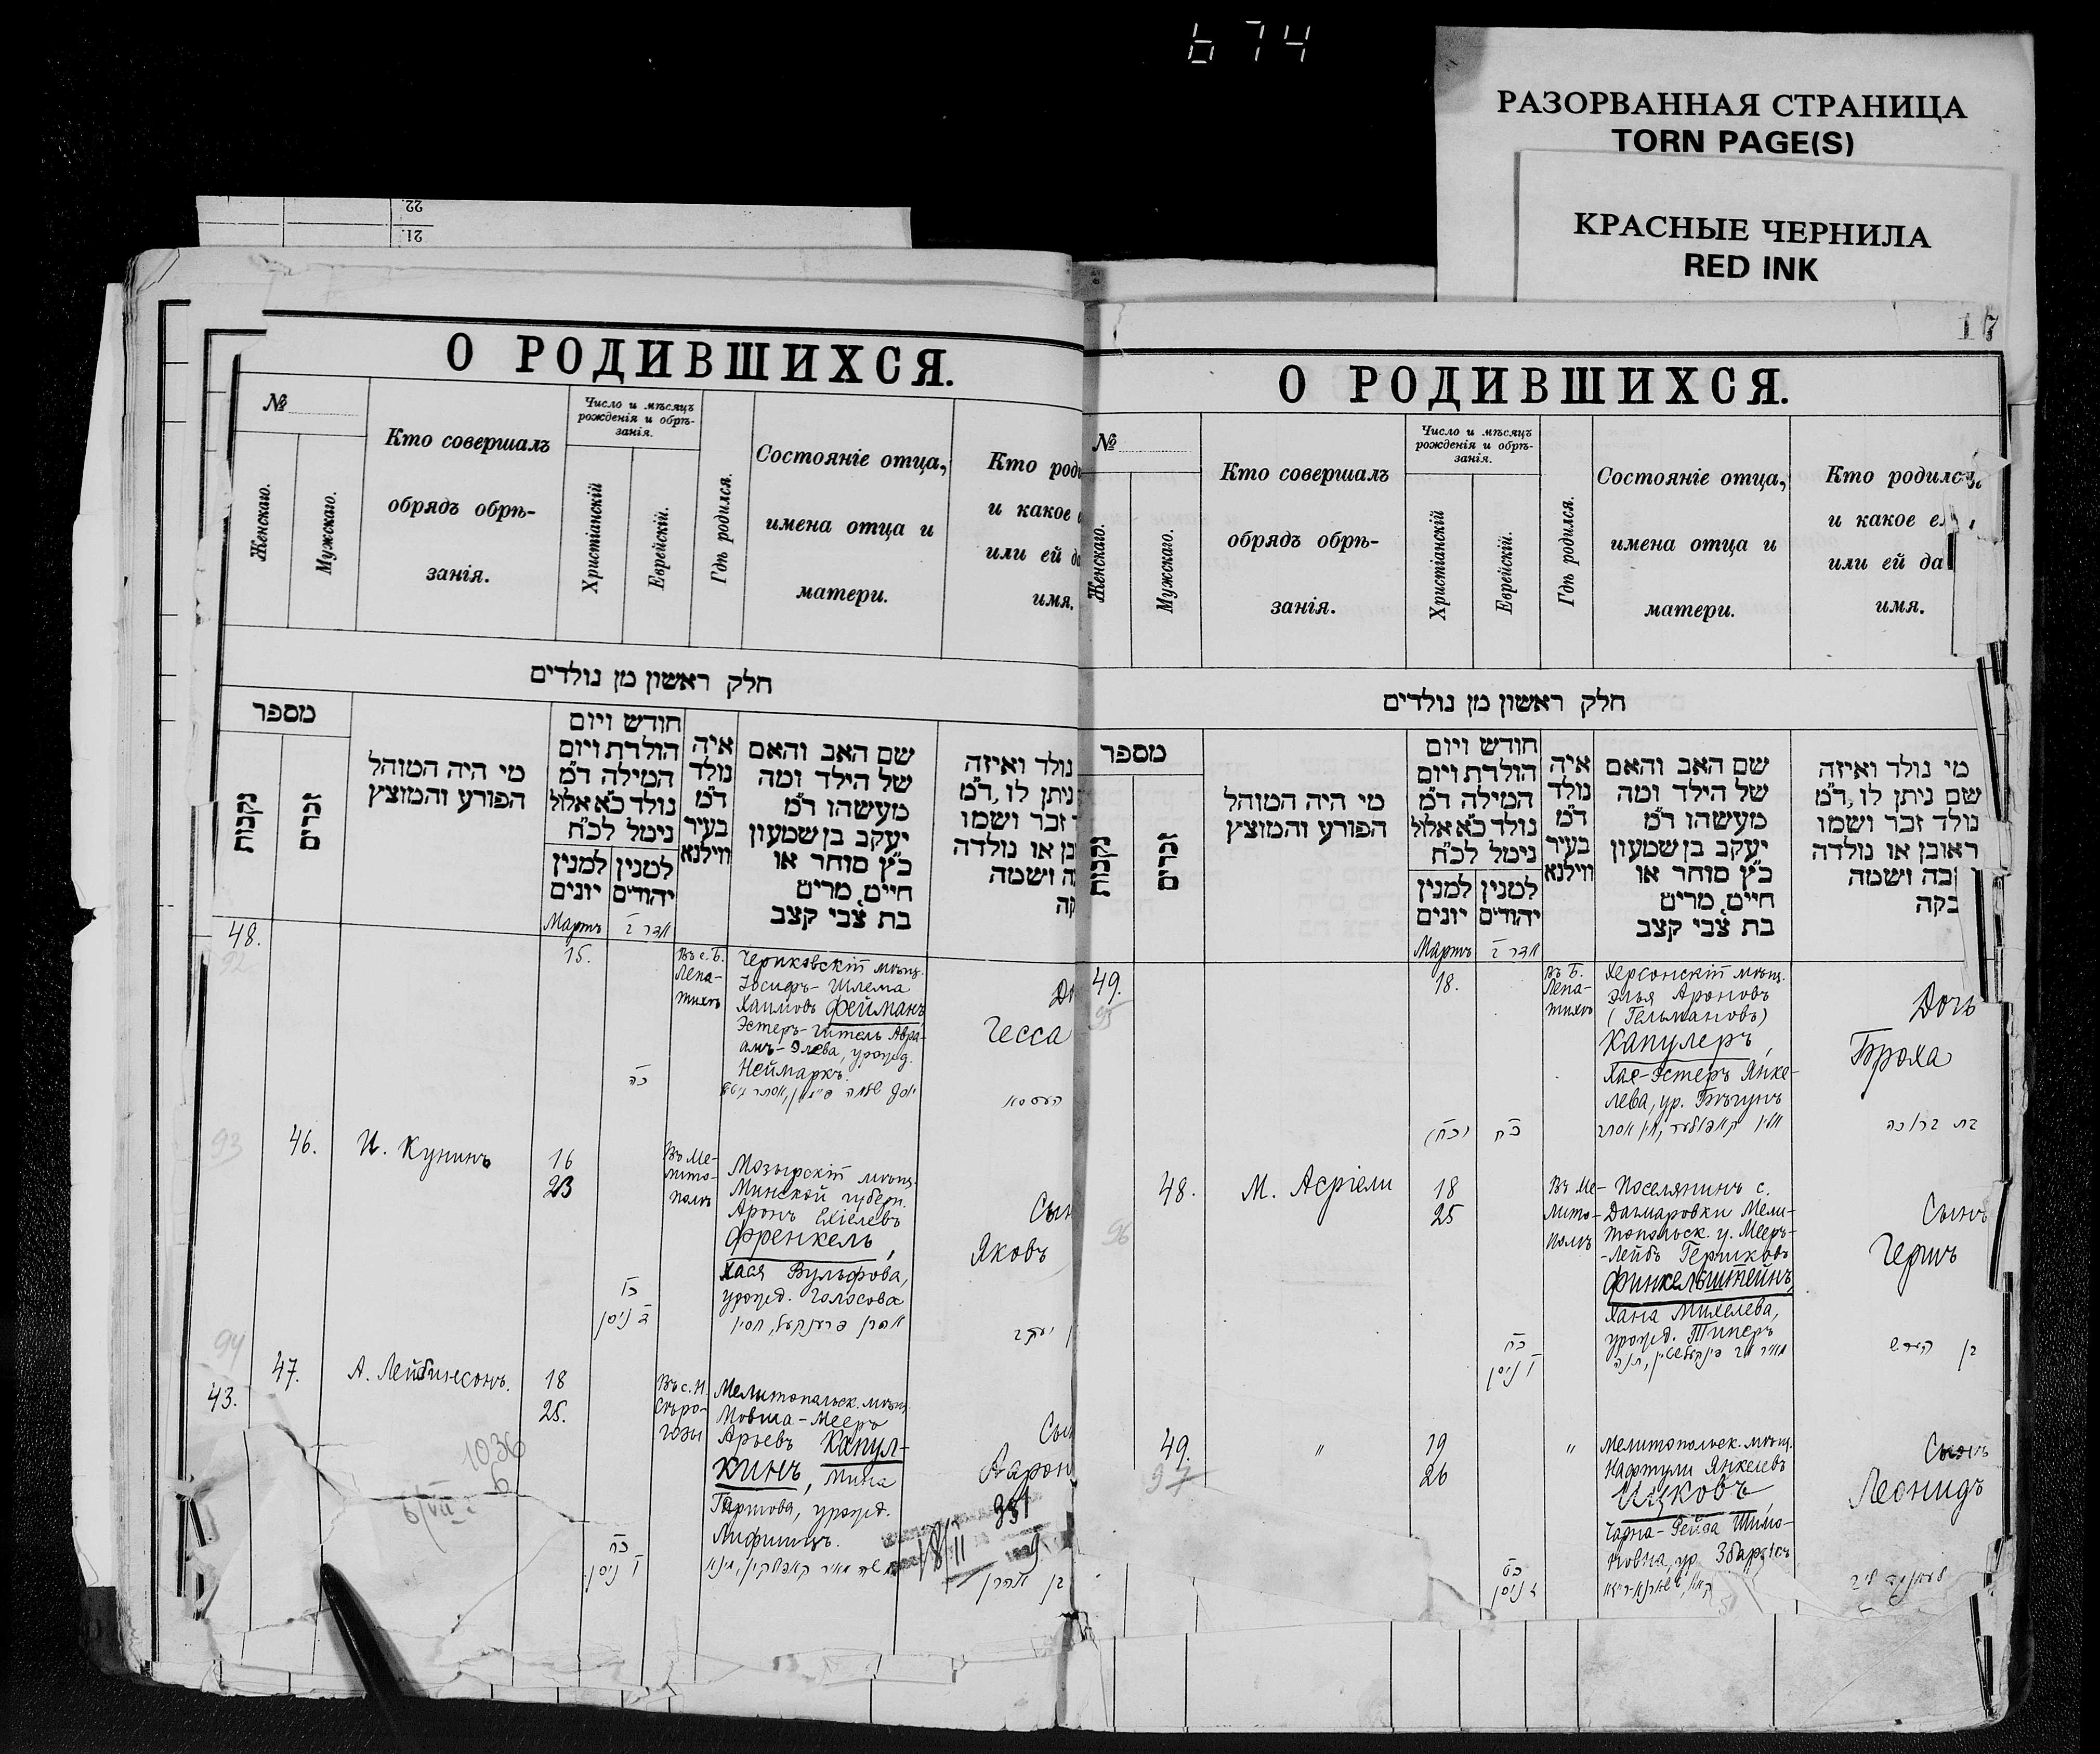 674
РАЗОРВАННАЯ СТРАНИЦА
TORN PAGE(S)
КРАСНЫЕ ЧЕРНИЛА
RED INK
22.
21.
О РОДИВШИХСЯ.
№
Женскаго.
Мужскаго.
Кто совершалъ
обрядъ обрѣ-
занія.
Число и мѣсяцъ
рожденія и обрѣ-
занія.
Христіанскій
Еврейскій.
Гдѣ родился.
Состояніе отца,
имена отца и
матери.
Кто роди
и какое
или ей да
имя.
חלק ראשון מן נולדים
מספר
נקבות
זכרים
מי היה המוהל
הפורע והמוצץ
חודש ויום
הולדת ויום
המילה ד"מ
נולד כ"א אלול
נימל לכ"ח
למנין
יונים
למנין
יהודים
איה
נולד
ד"מ
בעיר
ווילנא
שם האב והאם
של הילד ומה
מעשהו ד"מ
יעקב בן שמעון
כ"ץ סוחר או
חיים, מרים
בת צבי קצב
נולד ואיזה
ניתן לו, ד"מ
זכר ושמו
בן או נולדה
ושמה
קה
Мартъ
אדר ב
48.
92
15.
כה
Въ с. Б.
Лепа-
тихѣ
Чериковскій мѣщ.
Іосифъ-Шлема
Хаимовъ Фейманъ
Эстеръ-Гитель Авра-
амъ-Элева, урожд.
Неймаркъ.
До
Гесса
העססא
93
46.
И. Кунинъ
16
23
ב ניסן
Въ Ме-
лито-
полѣ
Мозырскій мѣщ.
Минской губерн.
Аронъ Ехіелевъ
Френкель,
Хася Вульфова,
урожд. Голосова
אהרן פרענקעל, חסיא
Сын
Яковъ
יעקב
94
47.
43.
А. Лейбинсонъ.
18
25.
כח
ו ניסן
Въ с. Н.
Сѣро-
гозы
Мелитопольск. мѣщ.
Мовша-Мееръ
Арьевъ Капул-
кинъ, Мина
Гиршова, урожд.
Лифшицъ.
Сын
Аарон
בן אהרן
1036
б
6/VII
331
18/II
9
17
О РОДИВШИХСЯ.
№
Женскаго.
Мужскаго.
Кто совершалъ
обрядъ обрѣ-
занія.
Число и мѣсяцъ
рожденія и обрѣ-
занія.
Христіанскій
Еврейскій.
Гдѣ родился.
Состояніе отца,
имена отца и
матери.
Кто родился,
и какое е
или ей да
имя.
חלק ראשון מן נולדים
מספר
נקבות
זכרים
מי היה המוהל
הפורע והמוצץ
חודש ויום
הולדת ויום
המילה ד"מ
נולד כ"א אלול
נימל לכ"ח
למנין
יונים
למנין
יהודים
איה
נולד
ד"מ
בעיר
ווילנא
שם האב והאם
של הילד ומה
מעשהו ד"מ
יעקב בן שמעון
כ"ץ סוחר או
חיים, מרים
בת צבי קצב
מי נולד ואיזה
שם ניתן לו, ד"מ
נולד זכר ושמו
ראובן או נולדה
בה ושמה
בקה
Мартъ
אדר ב
49.
95
18.
(כח)
כח
Въ Б.
Лепа-
тихѣ
Херсонскій мѣщ.
Элья Ароновъ
(Гельмановъ)
Капулеръ,
Хая-Эстеръ Янке-
лева, ур. Бѣгунъ
Дочь
Броха
בת ברוכה
96
48.
М. Асріели
18
25
כח
ו ניסן
Въ Ме-
лито-
полѣ
Поселянинъ с.
Дагмаровки Мели-
топольск. у. Мееръ-
-Лейбъ Гершковъ
Финкельштейнъ,
Хана Михелева,
урожд. Типеръ
Сынъ
Гершъ
בן הערש
49.
97
"
19
26
כט
ז ניסן
"
Мелитопольск. мѣщ.
Нафтули Янкелевъ
Ицковъ,
Чарна-Рейза Шимо-
новна, ур. Збаржъ
Сынъ
Леонидъ